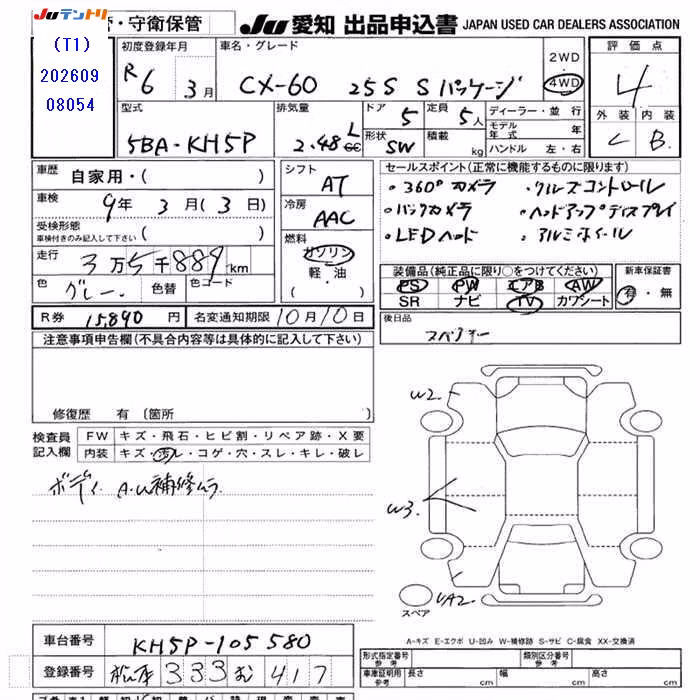 Juテントリ
・守衛保管
(T1)
202609
08054
JU 愛知 出品申込書 JAPAN USED CAR DEALERS ASSOCIATION
初度登録年月
R6 3月
車名・グレード
CX-60 25S Sパッケージ
2WD
4WD
評価点
4
外装 内装
C B
型式
5BA-KH5P
排気量
2.48 L
cc
ドア
5
定員
5人
形状
SW
積載
kg
ディーラー・並行
モデル年式 年
ハンドル 左・右
車歴
自家用・( )
車検
9年 3月(3日)
受検形態
車検付きのみ記入して下さい ( )
走行
3万5千889km
色
グレー
色替
色コード
シフト
AT
冷房
AAC
燃料
ガソリン
軽・油
( ・ )
セールスポイント(正常に機能するものに限ります)
・360°カメラ ・クルーズコントロール
・バックカメラ ・ヘッドアップディスプレイ
・LEDヘッド ・アルミホイール
装備品(純正品に限り○をつけてください)
PS PW エアB AW
SR ナビ TV カワシート
新車保証書
有・無
R券 15,890円
名変通知期限 10月10日
後日品
スペアキー
注意事項申告欄(不具合内容等は具体的に記入して下さい)
修復歴 有〔箇所
検査員
記入欄
FW キズ・飛石・ヒビ割・リペア跡・X要
内装 キズ・汚レ・コゲ・穴・スレ・キレ・破レ
ボディ A・U補修ムラ
W2
W3
UA2
スペア
A-キズ E-エクボ U-凹み W-補修跡 S-サビ C-腐食 XX-交換済
車台番号
KH5P-105580
登録番号
333 417
形式指定番号
参考
類別区分番号
参考
車庫証明用
参考
長さ cm
幅 cm
高さ cm